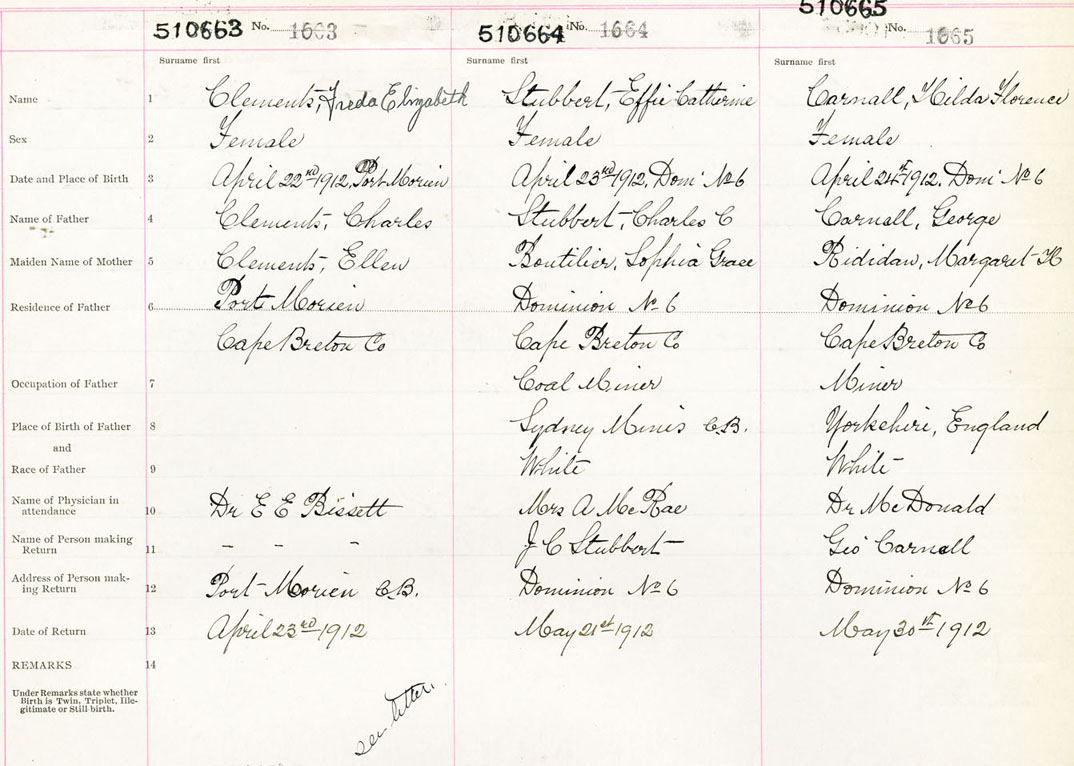 510663 No. 1663 510664 No. 1664 510665 No. 1665
Surname first Surname first Surname first
Name 1 Clements, Freda Elizabeth Stubbert, Effie Catherine Carnall, Hilda Florence
Sex 2 Female Female Female
Date and Place of Birth 3 April 22nd 1912, Port Morien April 23rd 1912, Dom' No 6 April 24th 1912, Dom' No 6
Name of Father 4 Clements, Charles Stubbert, Charles C Carnall, George
Maiden Name of Mother 5 Clements, Ellen Boutilier, Sophia Grace Rididan, Margaret H
Residence of Father 6 Port Morien Dominion No 6 Dominion No 6
Cape Breton Co Cape Breton Co Cape Breton Co
Occupation of Father 7 Coal Miner Miner
Place of Birth of Father 8 Sydney Mines C.B. Yorkshire, England
and
Race of Father 9 White White
Name of Physician in
attendance 10 Dr E E Bissett Mrs A McRae Dr McDonald
Name of Person making
Return 11 - - - J C Stubbert Geo Carnall
Address of Person mak-
ing Return 12 Port Morien C.B. Dominion No 6 Dominion No 6
Date of Return 13 April 23rd 1912 May 21st 1912 May 30th 1912
REMARKS 14
Under Remarks state whether
Birth is Twin, Triplet, Ille-
gitimate or Still birth.
see letter.